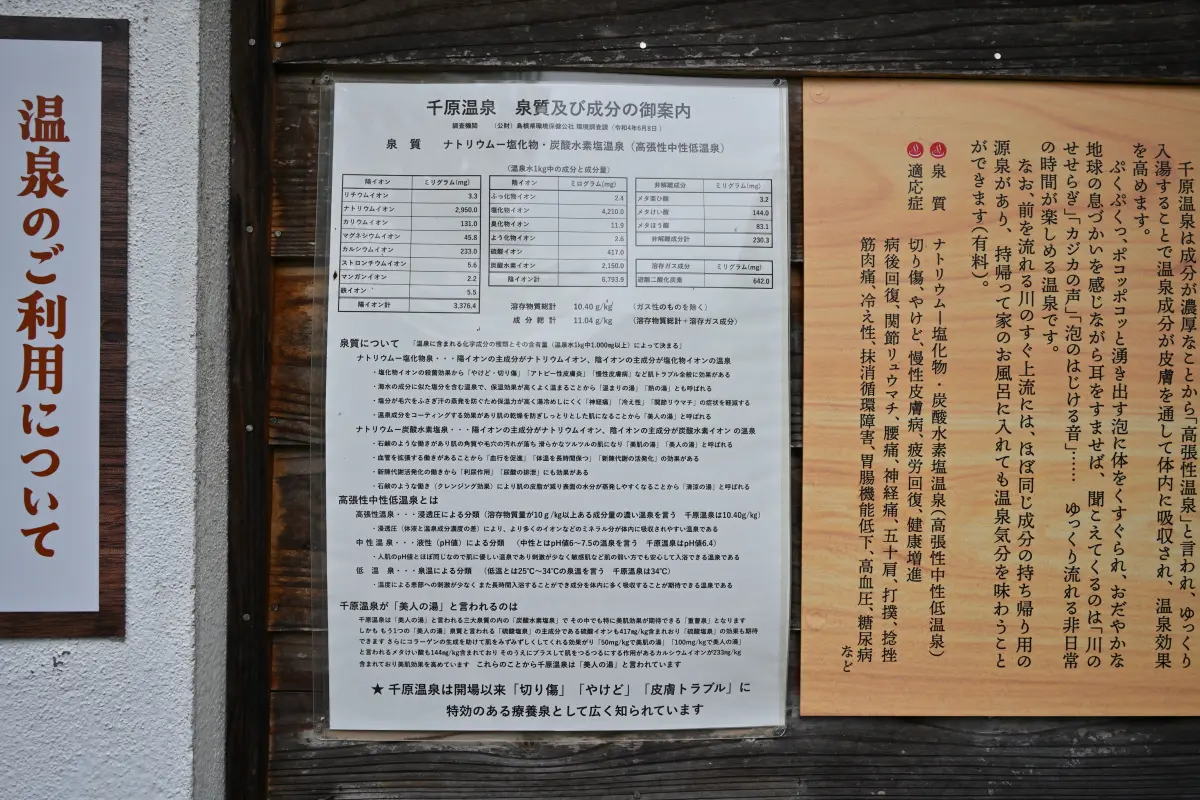 温泉のご利用について
千原温泉 泉質及び成分の御案内
調査機関 (公財)島根県環境保健公社 環境調査課(令和4年6月8日)
泉 質 ナトリウムー塩化物・炭酸水素塩温泉(高張性中性低温泉)
(温泉水1kg中の成分と成分量)
陽イオン ミリグラム(mg)
リチウムイオン 3.3
ナトリウムイオン 2,950.0
カリウムイオン 131.0
マグネシウムイオン 45.8
カルシウムイオン 233.0
ストロンチウムイオン 5.6
マンガンイオン 2.2
鉄イオン 5.5
陽イオン計 3,376.4
陰イオン ミログラム(mg)
ふっ化物イオン 2.4
塩化物イオン 4,210.0
臭化物イオン 11.9
よう化物イオン 2.6
硫酸イオン 417.0
炭酸水素イオン 2,150.0
陰イオン計 6,793.9
非解離成分 ミリグラム(mg)
メタ亜ひ酸 3.2
メタけい酸 144.0
メタほう酸 83.1
非解離成分計 230.3
溶存ガス成分 ミリグラム(mg)
遊離二酸化炭素 642.0
溶存物質総計 10.40 g/kg (ガス性のものを除く)
成 分 総 計 11.04 g/kg (溶存物質総計+溶存ガス成分)
泉質について 「温泉に含まれる化学成分の種類とその含有量(温泉水1kg中1.000㎎以上)によって決まる」
ナトリウムー塩化物泉・・・陽イオンの主成分がナトリウムイオン、陰イオンの主成分が塩化物イオンの温泉
・塩化物イオンの殺菌効果から「やけど・切り傷」「アトピー性皮膚炎」「慢性皮膚病」など肌トラブル全般に効果がある
・海水の成分に似た塩分を含む温泉で、保温効果が高くよく温まることから「温まりの湯」「熱の湯」とも呼ばれる
・塩分が毛穴をふさぎ汗の蒸発を防ぐため保温力が高く湯冷めしにくく「神経痛」「冷え性」「関節リウマチ」の症状を軽減する
・温泉成分をコーティングする効果があり肌の乾燥を防ぎしっとりとした肌になることから「美人の湯」と呼ばれる
ナトリウムー炭酸水素塩泉・・・陽イオンの主成分がナトリウムイオン、陰イオンの主成分が炭酸水素イオン の温泉
・石鹸のような働きがあり肌の角質や毛穴の汚れが落ち 滑らかなツルツルの肌になり「美肌の湯」「美人の湯」と呼ばれる
・血管を拡張する働きがあることから「血行を促進」「体温を長時間保つ」「新陳代謝の活発化」の効果がある
・新陳代謝活発化の働きから「利尿作用」「尿酸の排泄」にも効果がある
・石鹸のような働き(クレンジング効果)により肌の皮脂が減り表面の水分が蒸発しやすくなることから「清涼の湯」と呼ばれる
高張性中性低温泉とは
高張性温泉・・・浸透圧による分類(溶存物質量が10g/kg以上ある成分量の濃い温泉を言う 千原温泉は10.40g/kg)
・浸透圧(体液と温泉成分濃度の差)により、より多くのイオンなどのミネラル分が体内に吸収されやすい温泉である
中 性 温 泉・・・液性(pH値)による分類 (中性とはpH値6~7.5の温泉を言う 千原温泉はpH値6.4)
・人肌のpH値とほぼ同じなので肌に優しい温泉であり刺激が少なく敏感肌など肌の弱い方でも安心して入浴できる温泉である
低 温 泉・・・泉温による分類 (低温とは25℃~34℃の泉温を言う 千原温泉は34℃)
・温度による患部への刺激が少なく また長時間入浴することができ成分を体内に多く吸収することが期待できる温泉である
千原温泉が「美人の湯」と言われるのは
千原温泉は「美人の湯」と言われる三大泉質の内の「炭酸水素塩泉」で その中でも特に美肌効果が期待できる「重曹泉」となります
しかも もう1つの「美人の湯」泉質と言われる「硫酸塩泉」の主成分である硫酸イオンも417㎎/kg含まれており「硫酸塩泉」の効果も期待
できます さらにコラーゲンの生成を助けて肌をみずみずしくしてくれる効果がり「50㎎/kgで美肌の湯」「100㎎/kgで美人の湯」
と言われるメタけい酸も144㎎/kg含まれており そのうえにプラスして肌をつるつるにする作用があるカルシウムイオンが233㎎/kg
含まれており美肌効果を高めています これらのことから千原温泉は「美人の湯」と言われています
★ 千原温泉は開場以来「切り傷」「やけど」「皮膚トラブル」に
特効のある療養泉として広く知られています
千原温泉は成分が濃厚なことから「高張性温泉」と言われ、ゆっくり
入湯することで温泉成分が皮膚を通して体内に吸収され、温泉効果
を高めます。
ぷくぷくっ、ポコッポコッと湧き出す泡に体をくすぐられ、おだやかな
地球の息づかいを感じながら耳をすませば、聞こえてくるのは「川の
せせらぎ」「カジカの声」「泡のはじける音」…… ゆっくり流れる非日常
の時間が楽しめる温泉です。
なお、前を流れる川のすぐ上流には、ほぼ同じ成分の持ち帰り用の
源泉があり、持帰って家のお風呂に入れても温泉気分を味わうこと
ができます(有料)。
泉 質 ナトリウムー塩化物・炭酸水素塩温泉(高張性中性低温泉)
適応症 切り傷、やけど、慢性皮膚病、疲労回復、健康増進
病後回復、関節リュウマチ、腰痛、神経痛、五十肩、打撲、捻挫
筋肉痛、冷え性、抹消循環障害、胃腸機能低下、高血圧、糖尿病
など